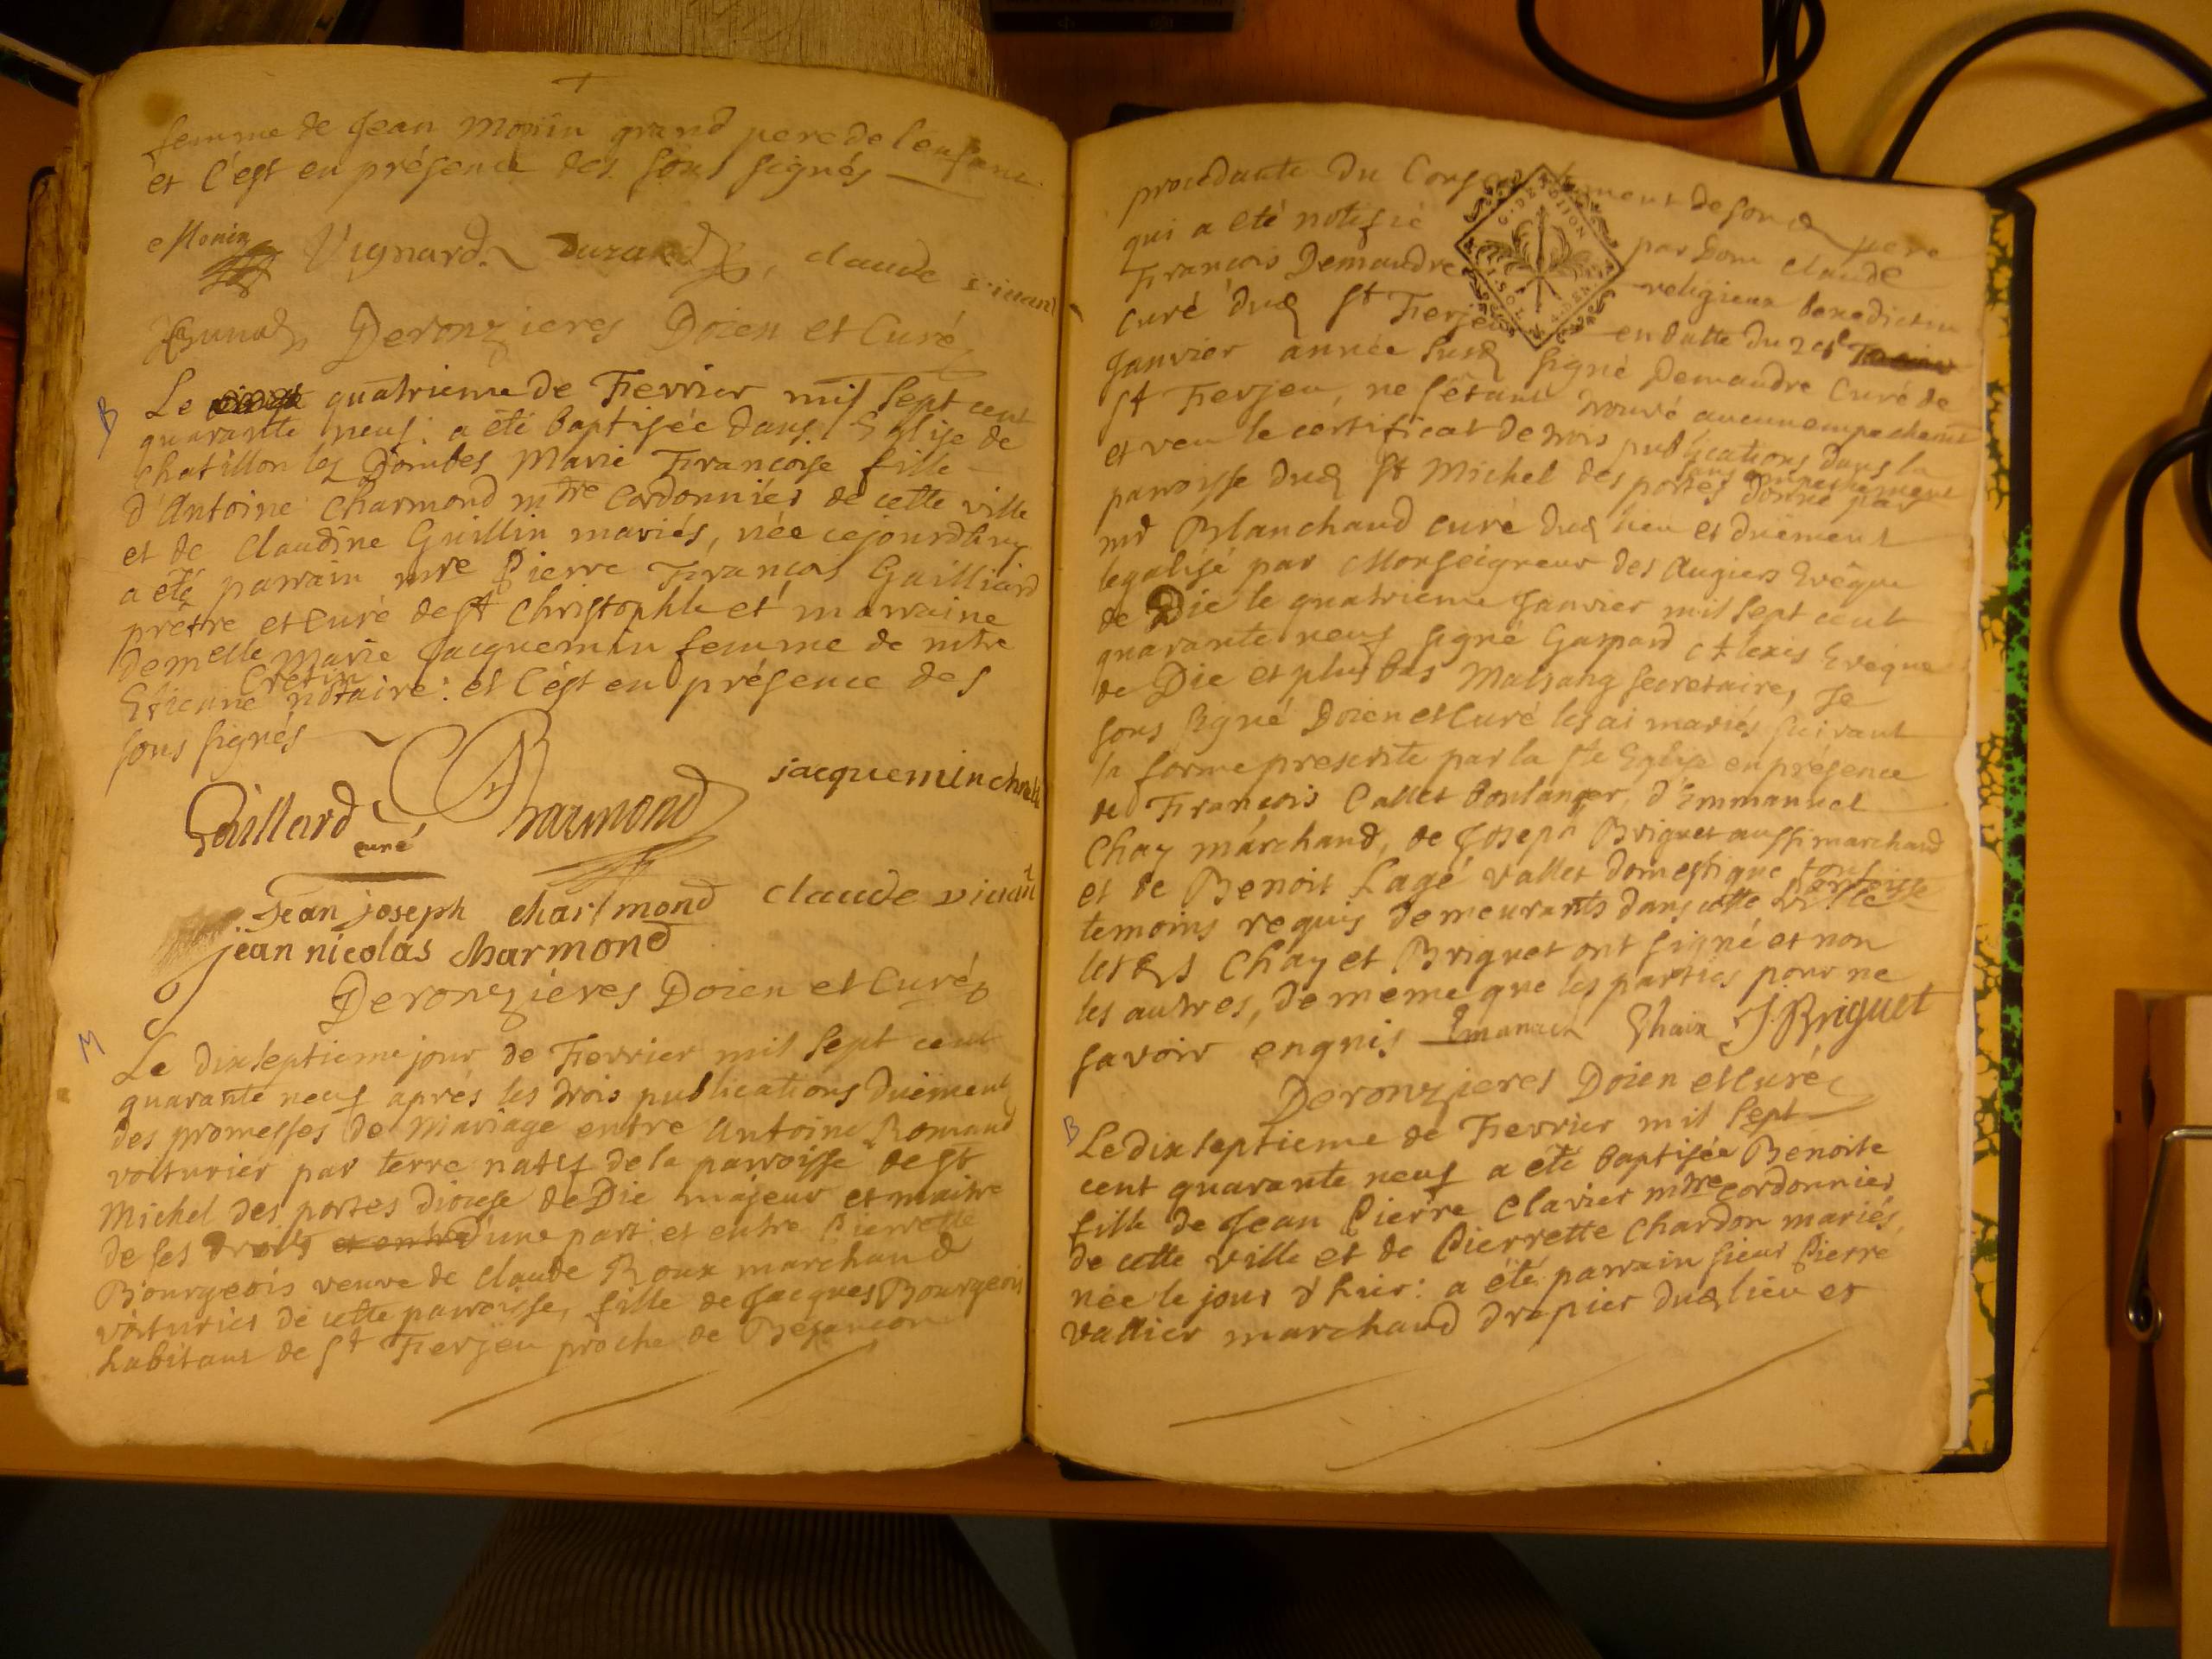 femme de Jean Monin grand pere de l'enfant
et c'est en présence des sous signés
Monin Vignard Durand, claude vivant
Brunet Deronzieres Doien et Curé
B
Le quatrieme de Fievrier mil sept cent
quarante neuf: a été baptisée dans l'Eglise de
chatillon les Dombes Marie Francoise fille
d'Antoine Charmond mtre Cordonnier de cette ville
et de Claudine Guillin mariés, née cejourdhuy
a été parrain mre Pierre Francois Gailliard
prêtre et Curé de St Christophle et marraine
Demelle Marie Jacquemin femme de mtre
Etienne Cretin notaire: et c'est en présence des
sous signés
Gaillard curé Charmond jacquemin
Jean joseph charmond claude vivant
jean nicolas charmond
Deronzieres Doien et Curé
M
Le dixseptieme jour de Fievrier mil sept cent
quarante neuf aprés les trois publications duëment
des promesses de Mariage entre Antoine Romand
voiturier par terre natif de la parroisse de St
Michel des portes diocese de Die majeur et maitre
de ses droits et entre d'une part et entre Pierrette
Bourgeois veuve de Claude Roux marchand
voiturier de cette parroisse, fille de Jacques Bourgeois
habitant de St Fierjeu proche de Besancon
procedante du Consentement de sond pere
qui a été notifié par Dom Claude
Francois Demandre religieux benedictin
Curé dud St Fierjeu en datte du
Janvier année susd signé Demandre Curé de
St Fierjeu, ne s'étant trouvé aucun empechement
et veu le certificat de trois publications dans la
parroisse dud St Michel des portes sans empechement donné par
mr Blanchard curé dud lieu et duëment
legalisé par Monseigneur des Augiers Evêque
de Die le quatrieme Janvier mil sept cent
quarante neuf signé Gaspard Alexis Evêque
de Die et plus bas Malsang secretaire, Je
sous signé Doien et Curé les ai mariés suivant
la forme prescrite par la Ste Eglise en présence
de Francois Callet boulanger, d'Emmanuel
Chay marchand, de Joseph Briguet aussi marchand
et de Benoit Lagé vallet domestique tous
temoins requis demeurants dans cette parroisse ville
lesds Chay et Briguet ont signé et non
les autres, de meme que les parties pour ne
savoir enquis Emanuel Chaix J. Briguet
Deronzieres Doien et Curé
B
Le dixseptieme de Fievrier mil sept
cent quarante neuf a été baptisée Benoite
fille de Jean Pierre Clavier mtre cordonnier
de cette ville et de Pierrette Chardon mariés,
née le jour d'hier: a été parrain sieur Pierre
Vallier marchand drapier dud lieu et